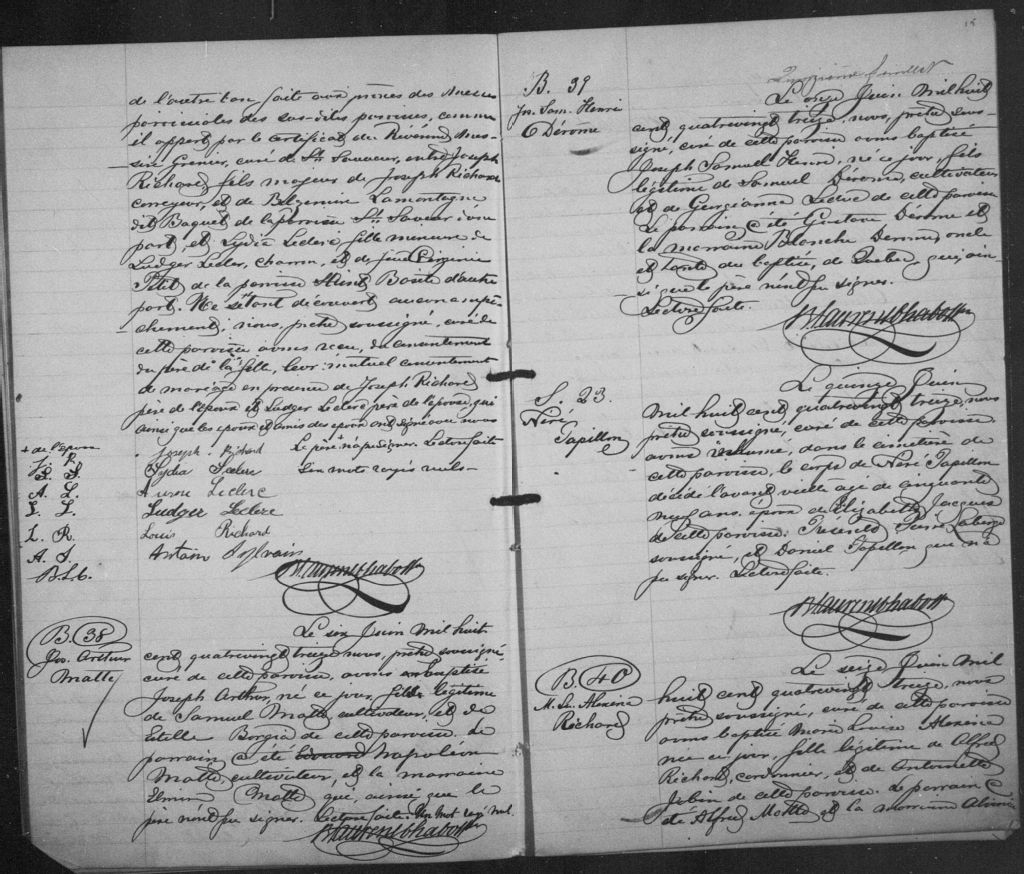 de l'autre ton faite aux prônes des Messes
paroissiales des sus-dites paroisses, comme
il appert par le certificat du Révérend Mes-
sire Grenier, curé de St Sauveur, entre Joseph
Richard, fils majeur de Joseph Richard
corroyeur, et de Belzemire Lamontagne
dit Baquet de la paroisse St Saveur d'une
part, et Lydia Leclerc fille mineure de
Ludger Lecler, charron, et de feue
Petit de la paroisse d'autre
part. Ne s'étant découvert aucun empê-
chement; nous, prêtre soussigné, curé de
cette paroisse avons reçu, du consentement
du père de la fille, leur mutuel consentement
de mariage en présence de Joseph Richard,
père de l'époux et Ludger Leclerc père de l'épouse, qui
ainsi que les époux et amis des époux ont signé avec nous
+ de l'époux
J. R. Joseph Richard Le père + n'a pu signer. Lecture faite
L. L. Lydia Leclerc Six mots rayés nuls—
A. L. Leclerc
L. L. Ludger Leclerc
L. R. Louis Richard
A. S. Antoin Sylvain
B. L. C.
B Laurent Chabot Ptre
B. 38
Jos. Arthur
Matte
Le six Juin Mil huit
cent quatrevingt treize nous, prêtre soussigné,
curé de cette paroisse, avons baptisé
Joseph Arthur, né ce jour, fils légitime
de Samuel Matte, cultivateur, et de
Estelle Borgia de cette paroisse. Le
parrain a été Edouard Napoléon
Matte, cultivateur, et la marraine
Elmire Matte qui, ainsi que le
père n'ont pu signer. Lecture faite. Un mot rayé nul.
B Laurent Chabot Ptre
15
Quinzième feuillet
B. 39
Jos. Sam. Henri
Derome
Le onze Juin Mil huit
cent quatrevingt treize, nous, prêtre sous-
signé, curé de cette paroisse avons baptisé
Joseph Samuel Henri, né ce jour, fils
légitime de Samuel Derome, cultivateur
et de Georgianne Leclerc de cette paroisse
Le parrain a été Gustave Derome et
la marraine Blanche Derome, oncle
et tante du baptisé, de Québec, qui, ain-
si que le père n'ont pu signer.
Lecture faite.
B Laurent Chabot Ptre
S. 23.
Néré
Papillon
Le quinze Juin
Mil huit cent quatrevingt treize, nous
prêtre soussigné, curé de cette paroisse
avons inhumé, dans le cimetière de
cette paroisse, le corps de Néré Papillon
décédé l'avant veille agé de cinquante
neuf ans, époux de Elizabeth Jacques
de cette paroisse. Présents Pierre Laberge
soussigné, et Daniel Papillon qui n'a
pu signer. Lecture faite.
B Laurent Chabot Ptre
B. 40
M. Ls. Alexina
Richard
Le seize Juin Mil
huit cent quatrevingt treize, nous
prêtre soussigné, curé de cette paroisse
avons baptisé Marie Louise Alexina
née ce jour, fille légitime de Alfred
Richard, cordonnier, et de Antoinette
Jobin de cette paroisse. Le parrain a
été Alfred Matte et la marraine